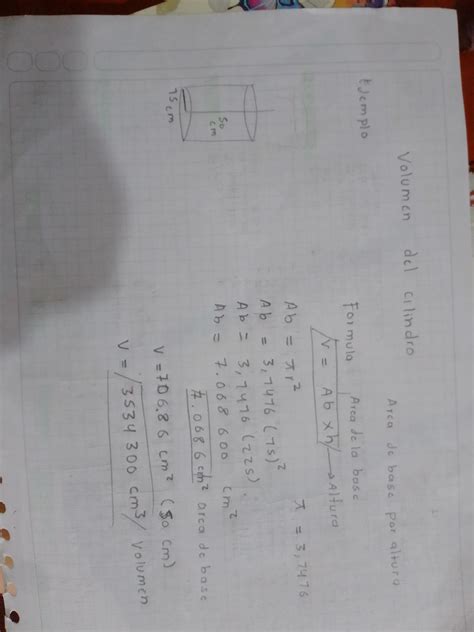 Volumen del cilindro
Area de base por altura
Ejemplo
50 cm
15 cm
Formula Area de la base
V = Ab x h → Altura
Ab = πr² π = 3,1416
Ab = 3,1416 (15)²
Ab = 3,1416 (225)
Ab = 7.068600 cm²
7.0686 cm² area de base
V = 706.86 cm² (50 cm)
V = 3534300 cm³ Volumen